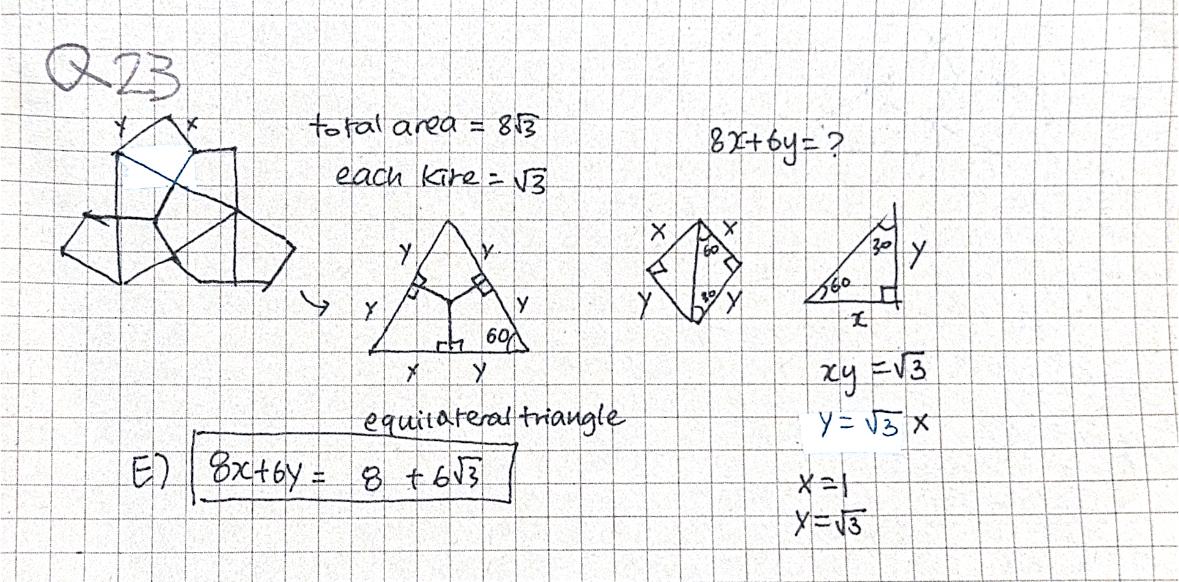 Q23
y x
total area = 8√3
8x+6y=?
each kite = √3
y y
x y
60
x y
x x
60
y 30 y
30 y
60
x
xy = √3
equilateral triangle
y = √3 x
E) 8x+6y = 8 + 6√3
x = 1
y = √3